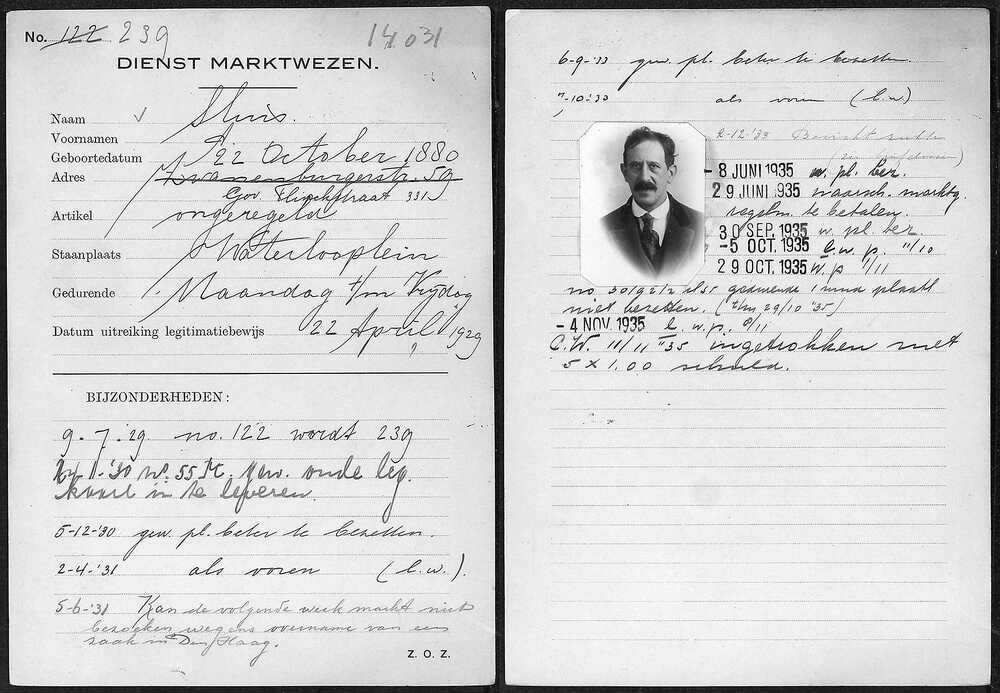 No. 122 239 14031
DIENST MARKTWEZEN.
Naam Sluis.
Voornamen
Geboortedatum 22 October 1880
Adres Zwanenburgerstr. 59
Gov. Flinckstraat 331
Artikel ongeregeld
Staanplaats Waterlooplein
Gedurende Maandag t/m Vrijdag
Datum uitreiking legitimatiebewijs 22 April 1929
BIJZONDERHEDEN:
9.7.29. no. 122 wordt 239
'30 No. 55 M. gew. oude leg.
kaart in te leveren.
5-12-'30 gew. pl. beter te bezetten.
2-4-'31 als voren (l.w.).
5-6-'31 Kan de volgende week markt niet
bezoeken wegens overname van een
zaak in Den Haag.
Z. O. Z.
6-9-'33 gew. pl. beter te bezetten.
7-10-'33 als voren (l.w)
2-12-'33 Bericht
- 8 JUNI 1935 w. pl. ber.
29 JUNI 1935 waarsch. marktg.
regelm. te betalen.
30 SEP. 1935 w. pl. ber.
-5 OCT. 1935 l.w.p. "/10
29 OCT. 1935 w.p "/11
no 30/92/2 gedurende 1 mnd plaats
niet bezetten. (t/m 29/10 '35)
- 4 NOV. 1935 l.w.p. 9/11
C.W. 11/11 '35 ingetrokken met
5 x 1.00 schuld.